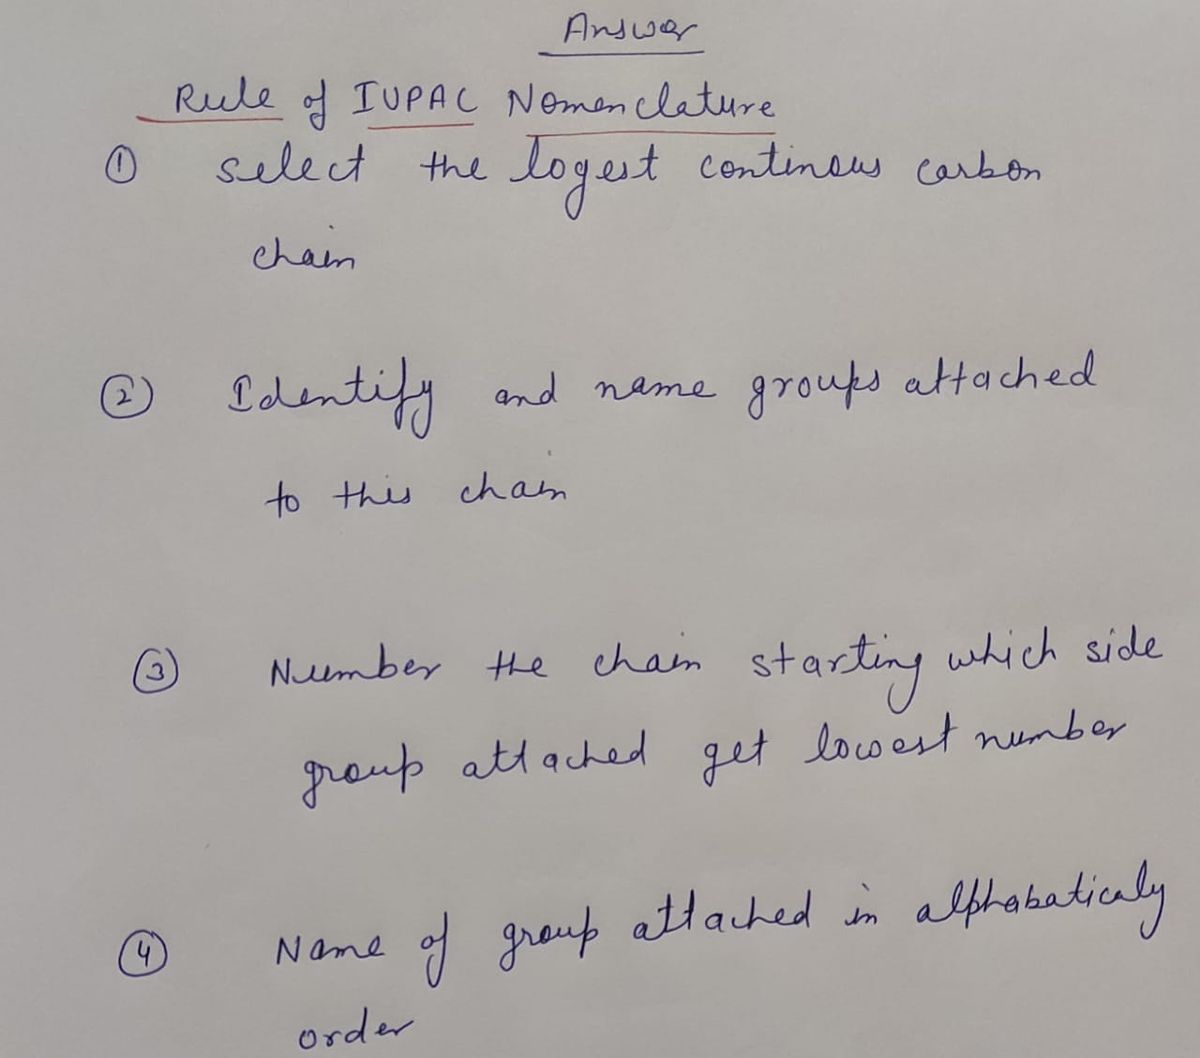 Answer
Rule of IUPAC Nomenclature
① select the logest continous carbon
chain
② Identify and name groups attached
to this chain
③ Number the chain starting which side
group attached get lowest number
④ Name of group attached in alphabaticaly
order